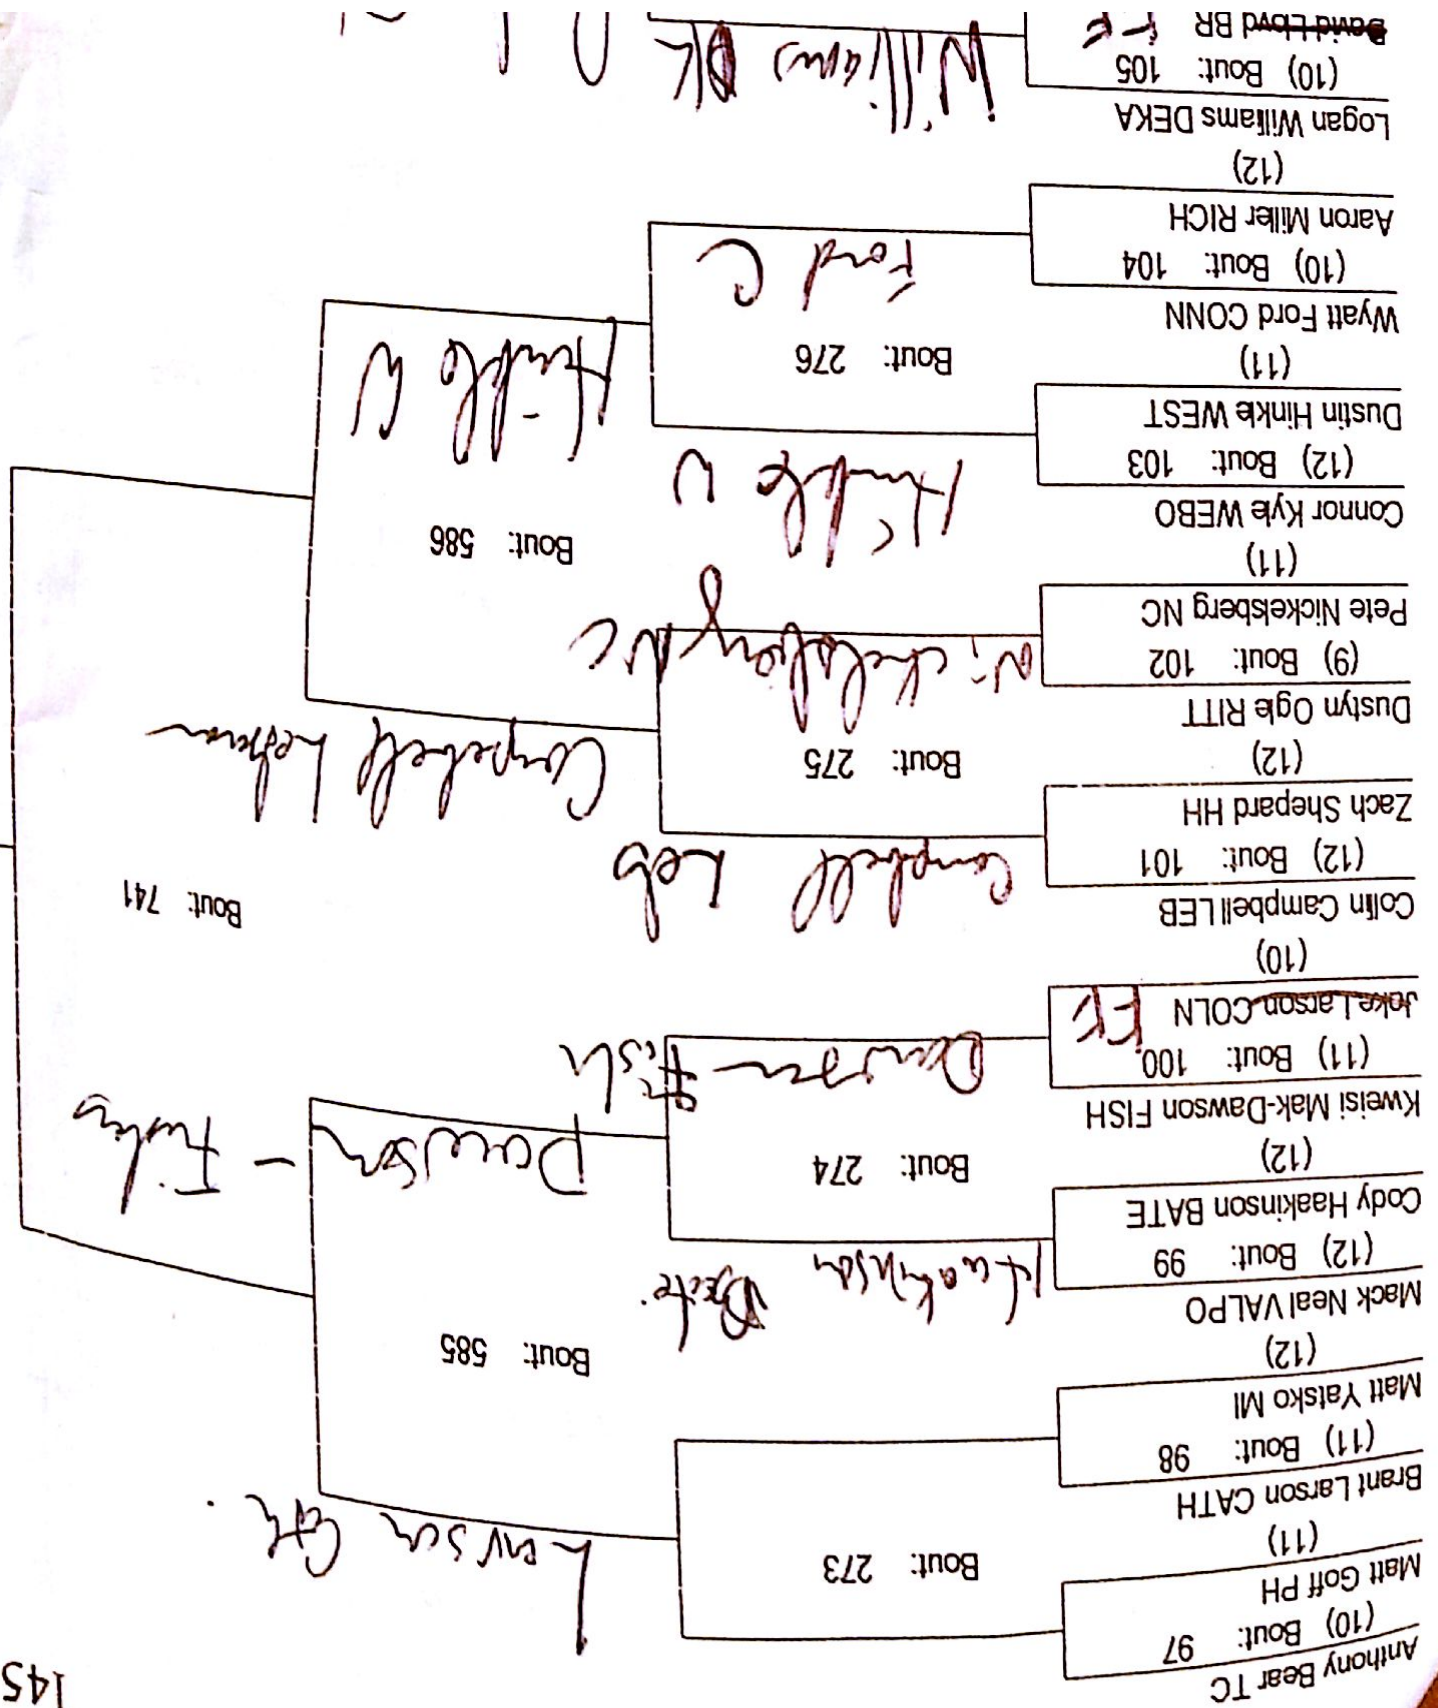 145
Anthony Bear TC
(10) Bout: 97
Matt Goff PH
(11)
Brant Larson CATH
(11) Bout: 98
Matt Yatsko MI
(12)
Mack Neal VALPO
(12) Bout: 99
Cody Haakinson BATE
(12)
Kweisi Mak-Dawson FISH
(11) Bout: 100
Jake Larson COLN FF
(10)
Colin Campbell LEB
(12) Bout: 101
Zach Shepard HH
(12)
Dustyn Ogle RITT
(9) Bout: 102
Pete Nickelsberg NC
(11)
Connor Kyle WEBO
(12) Bout: 103
Dustin Hinkle WEST
(11)
Wyatt Ford CONN
(10) Bout: 104
Aaron Miller RICH
(12)
Logan Williams DEKA
(10) Bout: 105
BR FF
Bout: 273
Haakinson Bate
Bout: 274
Dawson Fish
Campbell Leb
Bout: 275
Nickelsberg NC
Hinkle W
Bout: 276
Ford C
Williams DK
Larson Cath
Bout: 585
Dawson - Fishers
Campbell
Bout: 586
Hinkle W
Bout: 741